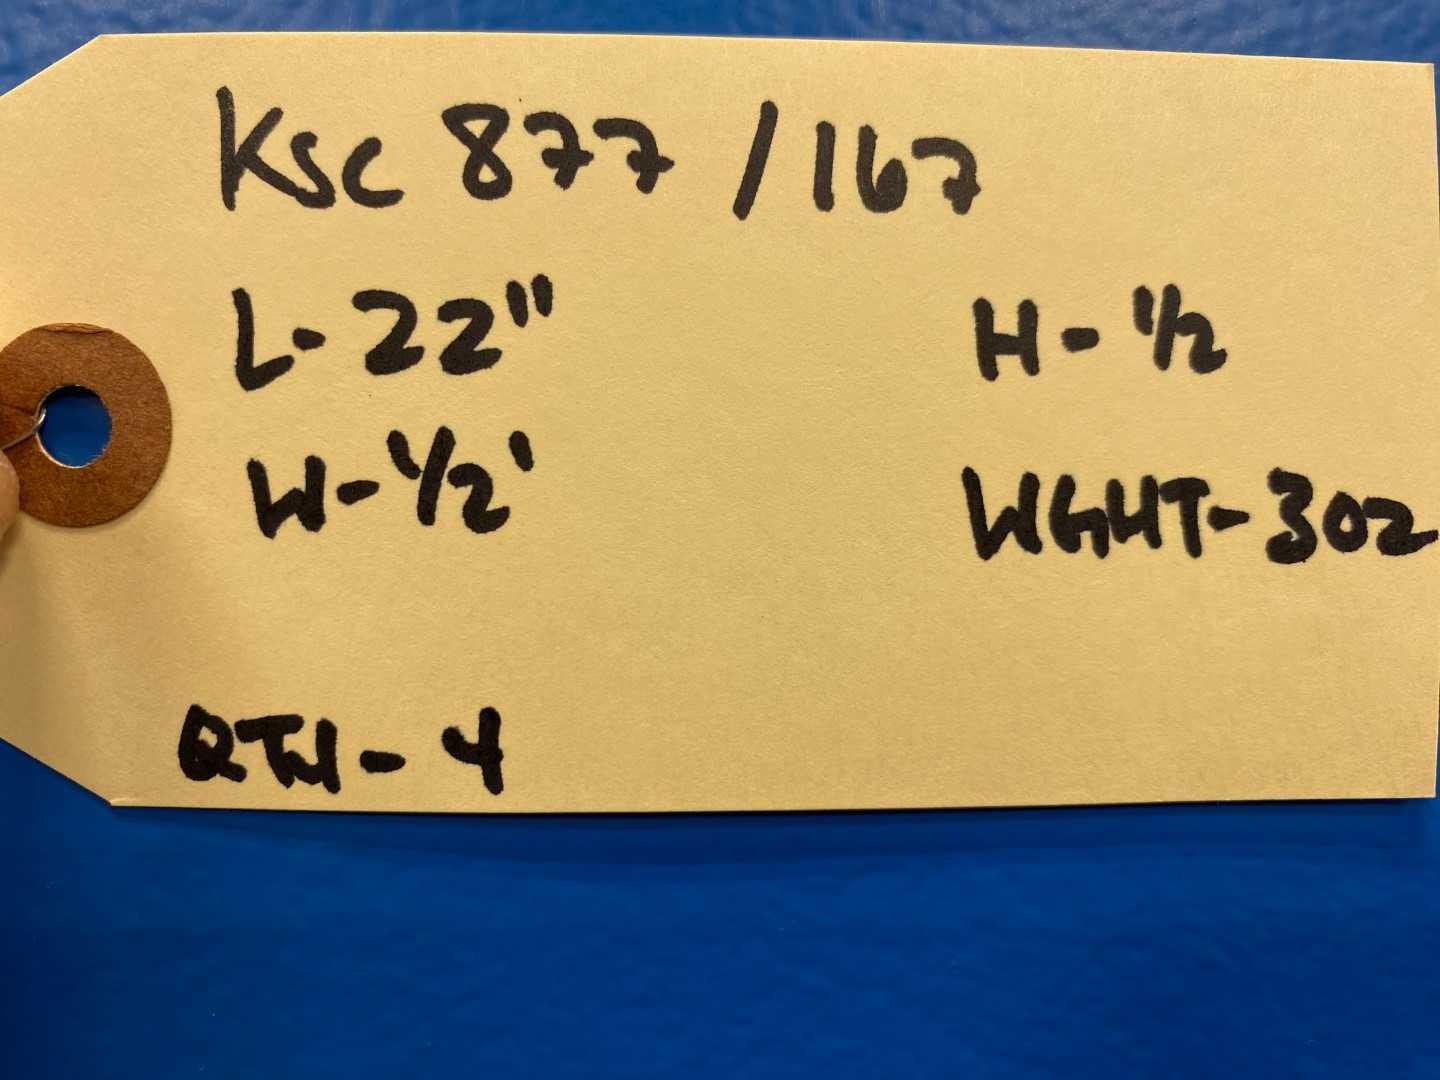 KSC 877 /167
L-22" H-1/2
W-1/2'
WGHT-302
QTY-4